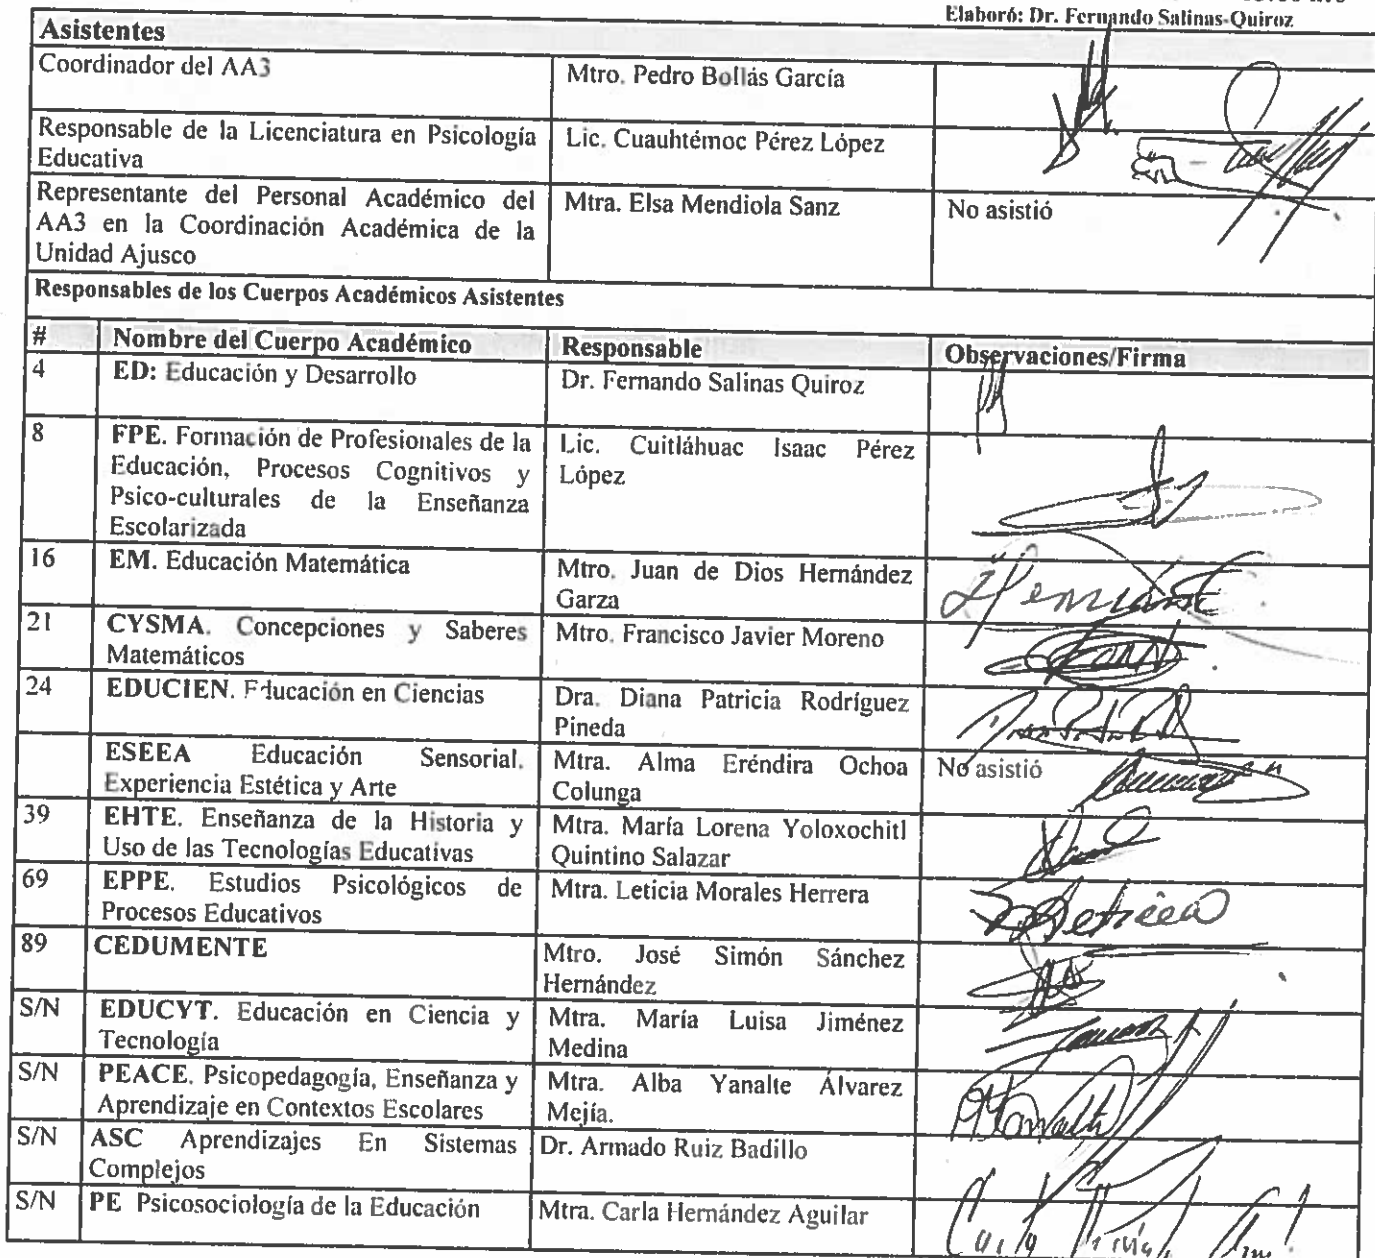 Elaboró: Dr. Fernando Salinas-Quiroz
Asistentes
Coordinador del AA3
Mtro. Pedro Bollás García
Responsable de la Licenciatura en Psicología
Educativa
Lic. Cuauhtémoc Pérez López
Representante del Personal Académico del
AA3 en la Coordinación Académica de la
Unidad Ajusco
Mtra. Elsa Mendiola Sanz
No asistió
Responsables de los Cuerpos Académicos Asistentes
# Nombre del Cuerpo Académico Responsable Observaciones/Firma
4 ED: Educación y Desarrollo
Dr. Fernando Salinas Quiroz
8 FPE. Formación de Profesionales de la
Educación, Procesos Cognitivos y
Psico-culturales de la Enseñanza
Escolarizada
Lic. Cuitláhuac Isaac Pérez
López
16 EM. Educación Matemática
Mtro. Juan de Dios Hernández
Garza
21 CYSMA. Concepciones y Saberes
Matemáticos
Mtro. Francisco Javier Moreno
24 EDUCIEN. Educación en Ciencias
Dra. Diana Patricia Rodríguez
Pineda
ESEEA Educación Sensorial.
Experiencia Estética y Arte
Mtra. Alma Eréndira Ochoa
Colunga
No asistió
39 EHTE. Enseñanza de la Historia y
Uso de las Tecnologías Educativas
Mtra. María Lorena Yoloxochitl
Quintino Salazar
69 EPPE. Estudios Psicológicos de
Procesos Educativos
Mtra. Leticia Morales Herrera
89 CEDUMENTE
Mtro. José Simón Sánchez
Hernández
S/N EDUCYT. Educación en Ciencia y
Tecnología
Mtra. María Luisa Jiménez
Medina
S/N PEACE. Psicopedagogía, Enseñanza y
Aprendizaje en Contextos Escolares
Mtra. Alba Yanalte Álvarez
Mejía.
S/N ASC Aprendizajes En Sistemas
Complejos
Dr. Armado Ruiz Badillo
S/N PE Psicosociología de la Educación
Mtra. Carla Hernández Aguilar